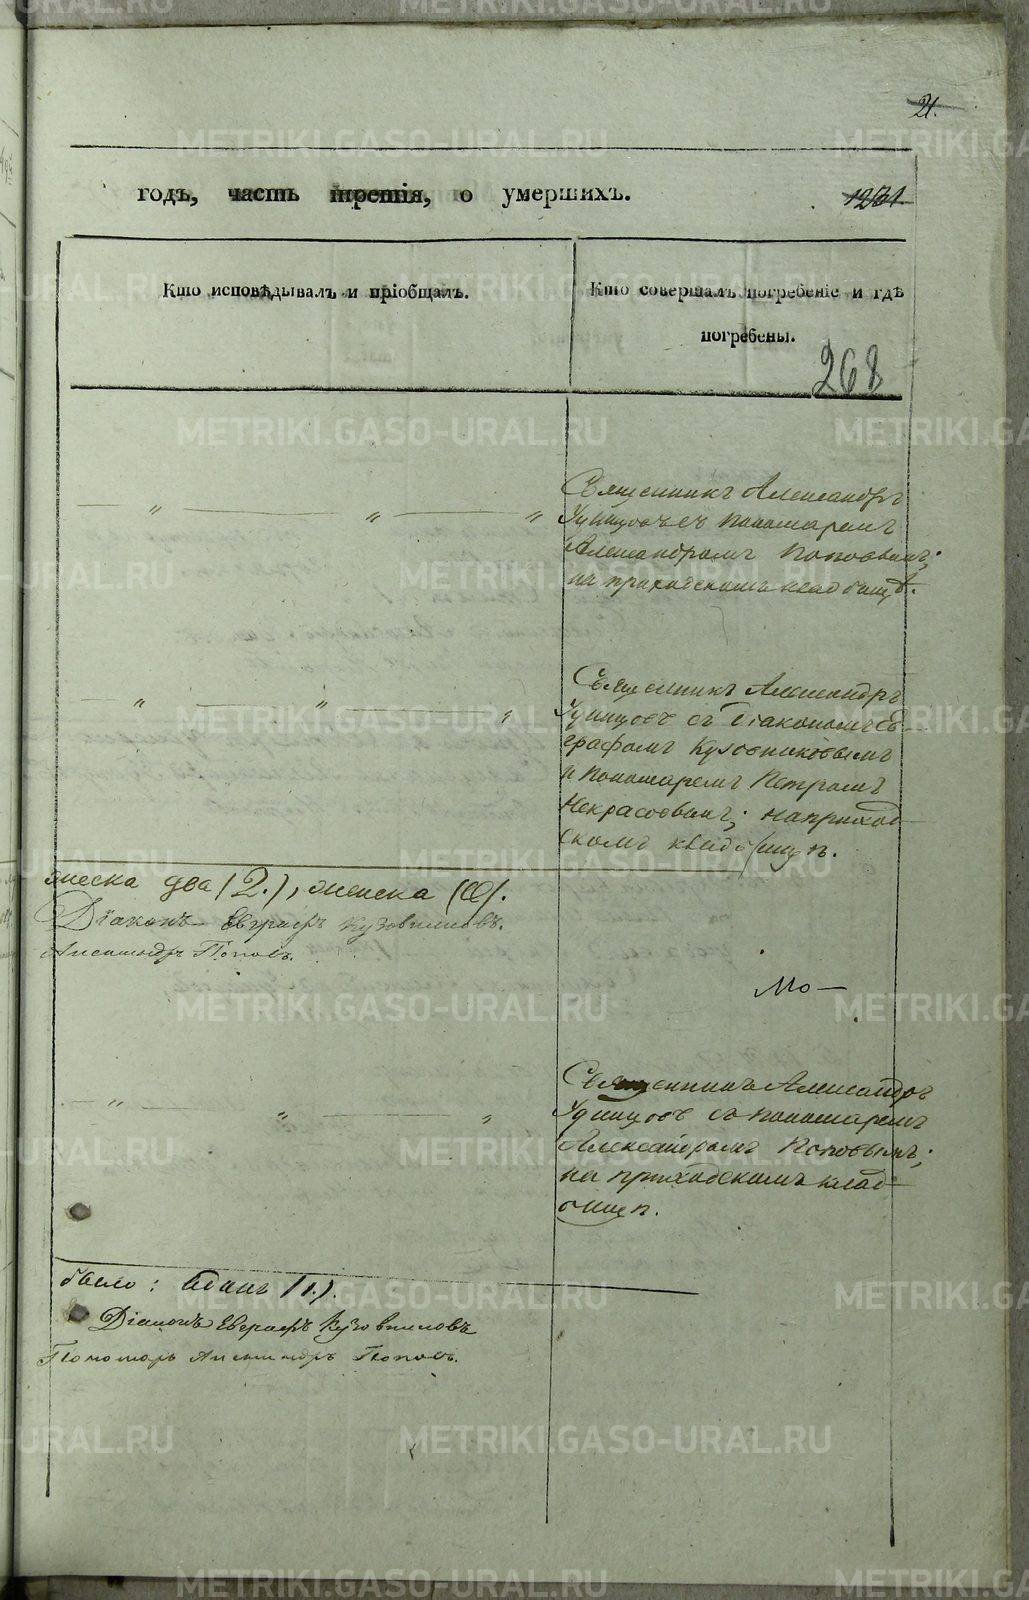 21.
годъ, часть третія, о умершихъ.
1261.
Кто исповѣдывалъ и пріобщалъ.
Кто совершалъ погребеніе и гдѣ
погребены.
268
Священникъ Александръ
Удинцовъ съ пономаремъ
Александромъ Поповымъ;
на приходскомъ кладбищѣ.
Священникъ Александръ
Удинцовъ съ Діакономъ Ев-
графомъ Кузовниковымъ
и пономаремъ Петромъ
Некрасовымъ; на приход-
скомъ кладбищѣ.
жеска два (2.), женска (0).
Діаконъ Евграфъ Кузовниковъ.
Александръ Поповъ.
Мо-
Священникъ Александръ
Удинцовъ съ пономаремъ
Александромъ Поповымъ;
на приходскомъ клад-
бищѣ.
было: одинъ (1.).
Діаконъ Евграфъ Кузовниковъ
Пономарь Александръ Поповъ.
METRIKI.GASO-URAL.RU